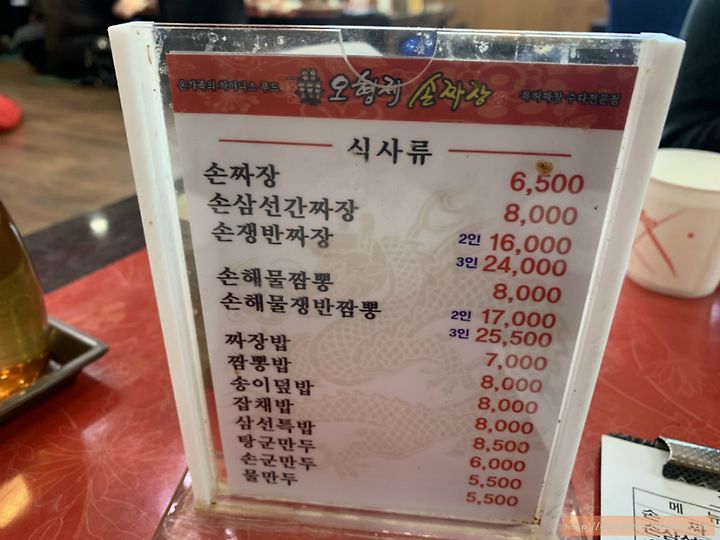 온가족의 차이니스 푸드 오형제 손짜장 특허짜장 수타전문점
식사류
손짜장 6,500
손삼선간짜장 8,000
손쟁반짜장 2인 16,000
3인 24,000
손해물짬뽕 8,000
손해물쟁반짬뽕 2인 17,000
3인 25,500
짜장밥 7,000
짬뽕밥 8,000
송이덮밥 8,000
잡채밥 8,000
삼선특밥 8,500
탕군만두 6,000
손군만두 5,500
물만두 5,500
메
손 짜